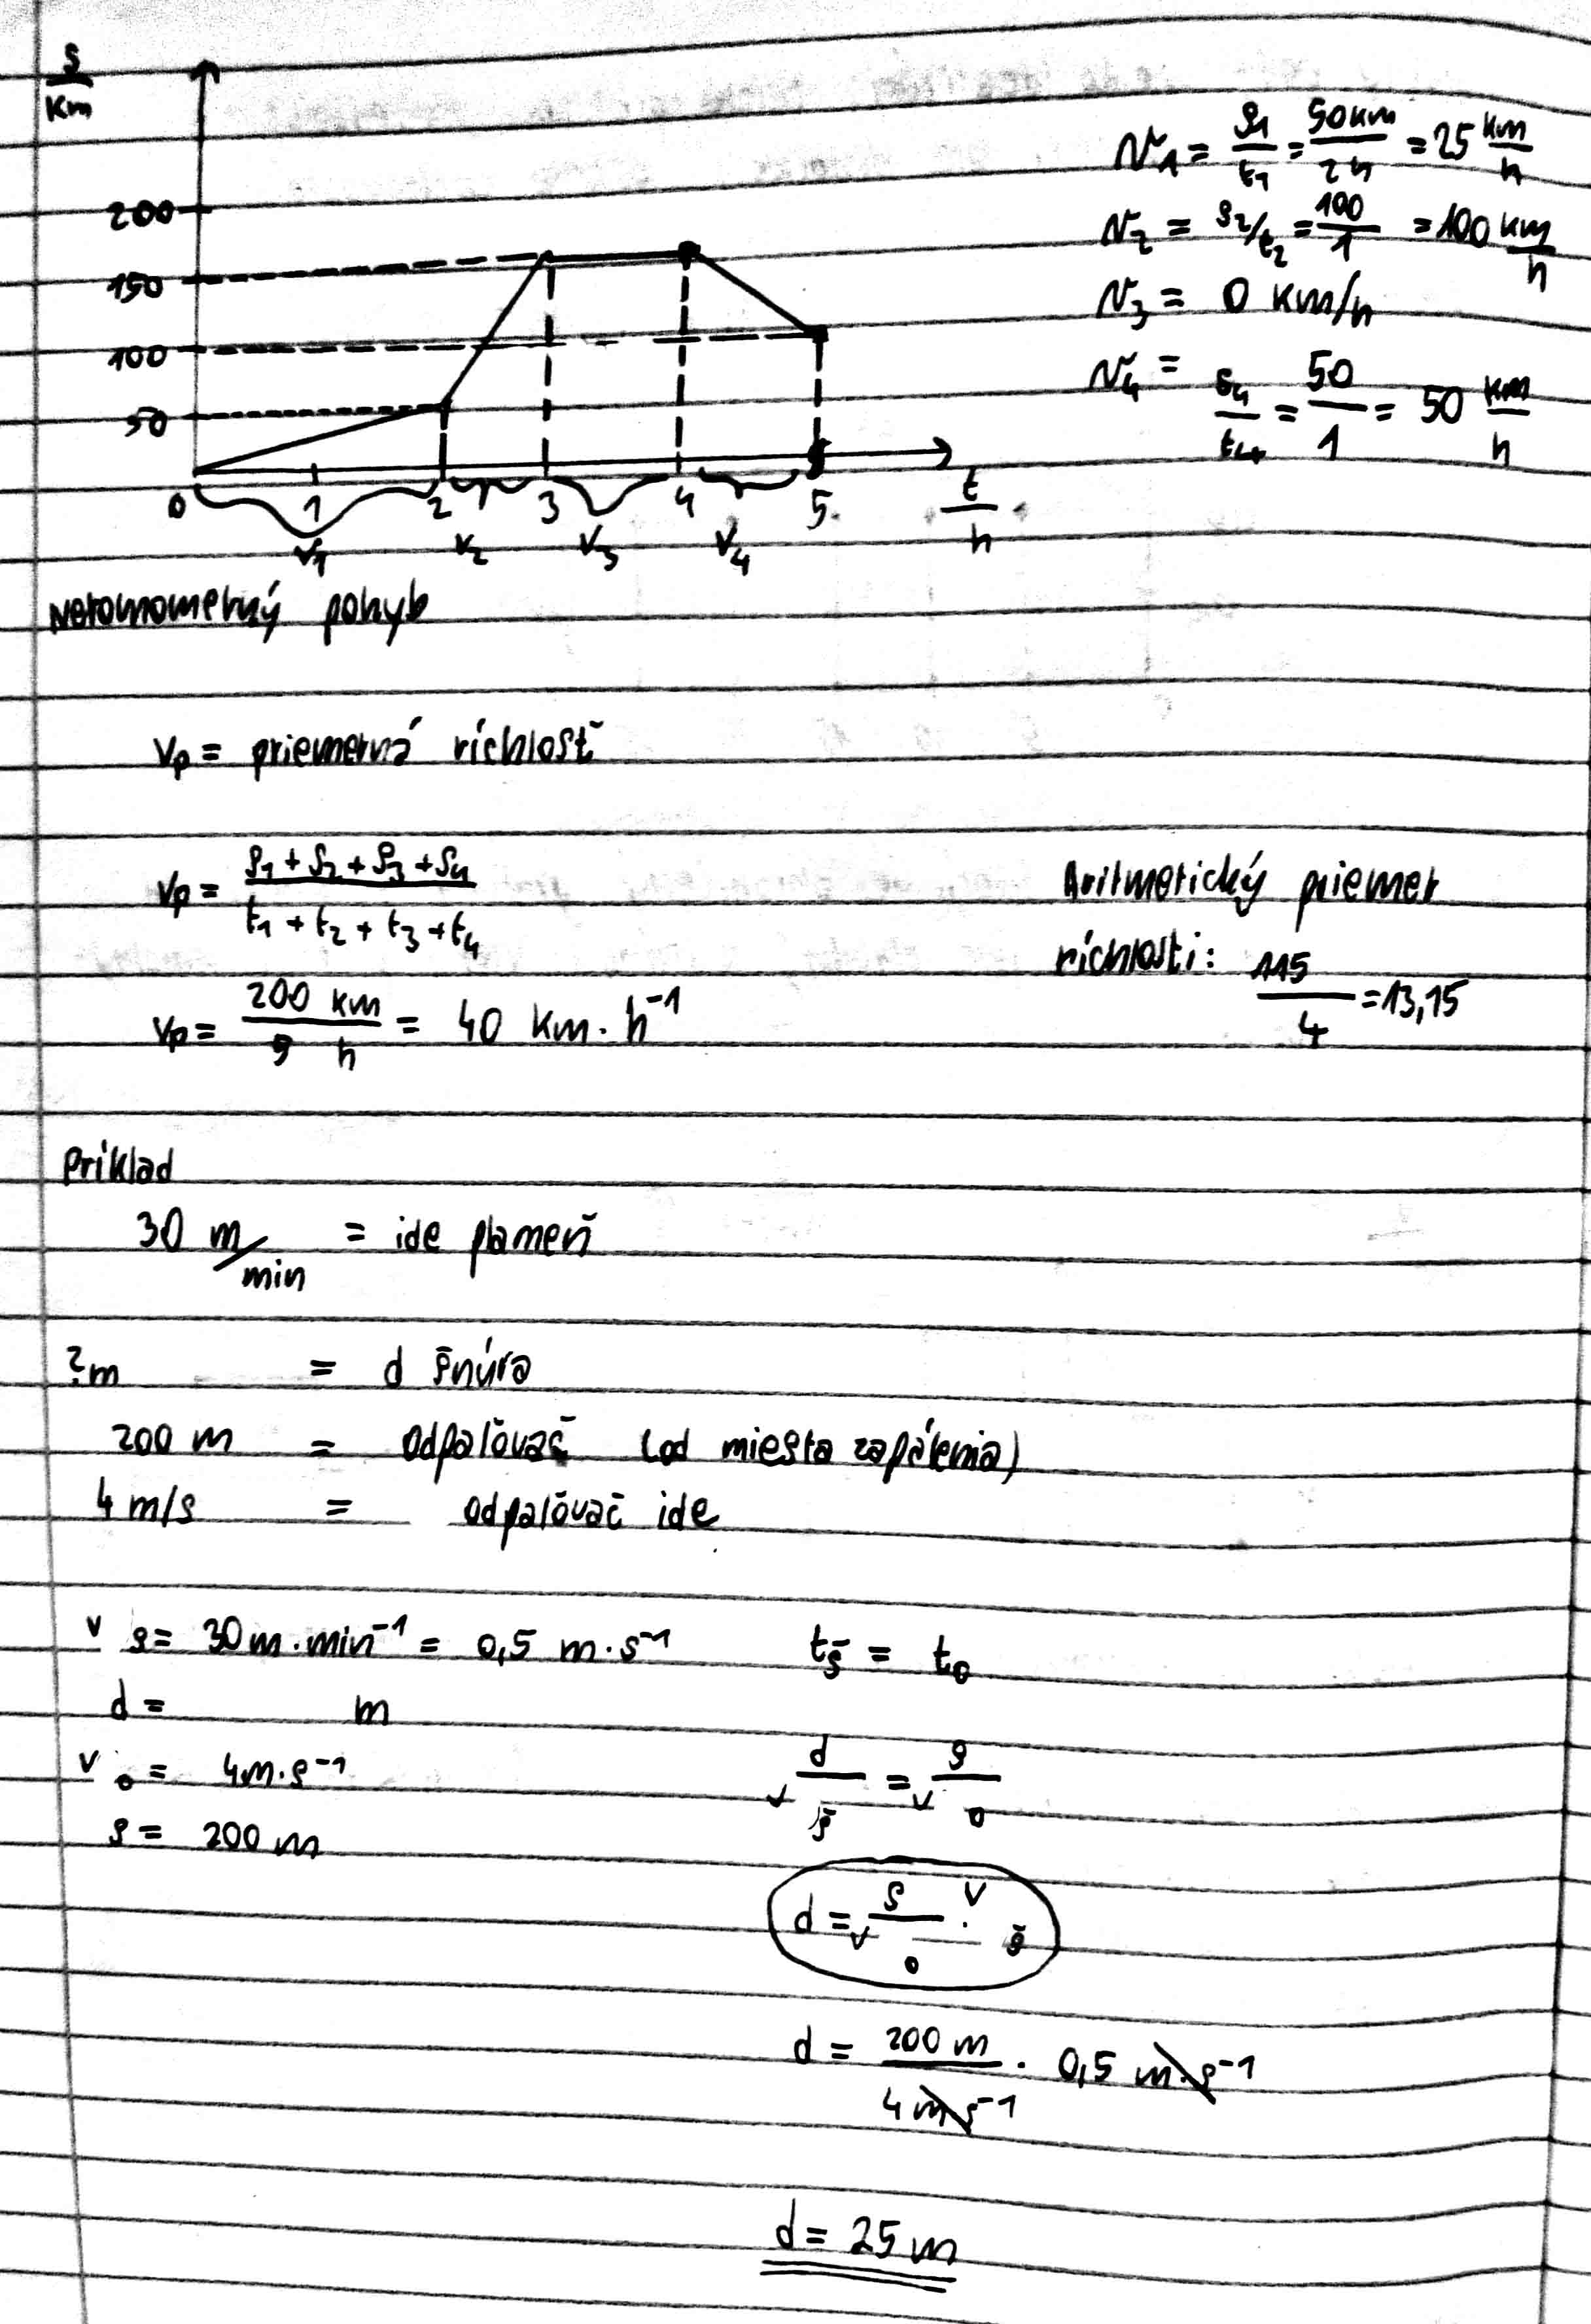 s/km
200
150
100
50
0 1 2 3 4 5 t/h
v1 v2 v3 v4
v1 = s1/t1 = 50 km/2 h = 25 km/h
v2 = s2/t2 = 100/1 = 100 km/h
v3 = 0 km/h
v4 = s4/t4 = 50/1 = 50 km/h
Nerovnomerný pohyb
vp = priemerná ríchlosť
vp = s1 + s2 + s3 + s4 / t1 + t2 + t3 + t4
Aritmetický priemer
ríchlosti: 115/4 = 13,15
vp = 200 km/5 h = 40 km · h⁻¹
Príklad
30 m/min = ide plameň
? m = d šnúra
200 m = odpaľovač (od miesta zapálenia)
4 m/s = odpaľovač ide
v š = 30 m · min⁻¹ = 0,5 m · s⁻¹ tš = to
d = m
v o = 4 m · s⁻¹ d/v š = s/v o
s = 200 m
d = s/v o · v š
d = 200 m/4 m s⁻¹ · 0,5 m · s⁻¹
d = 25 m